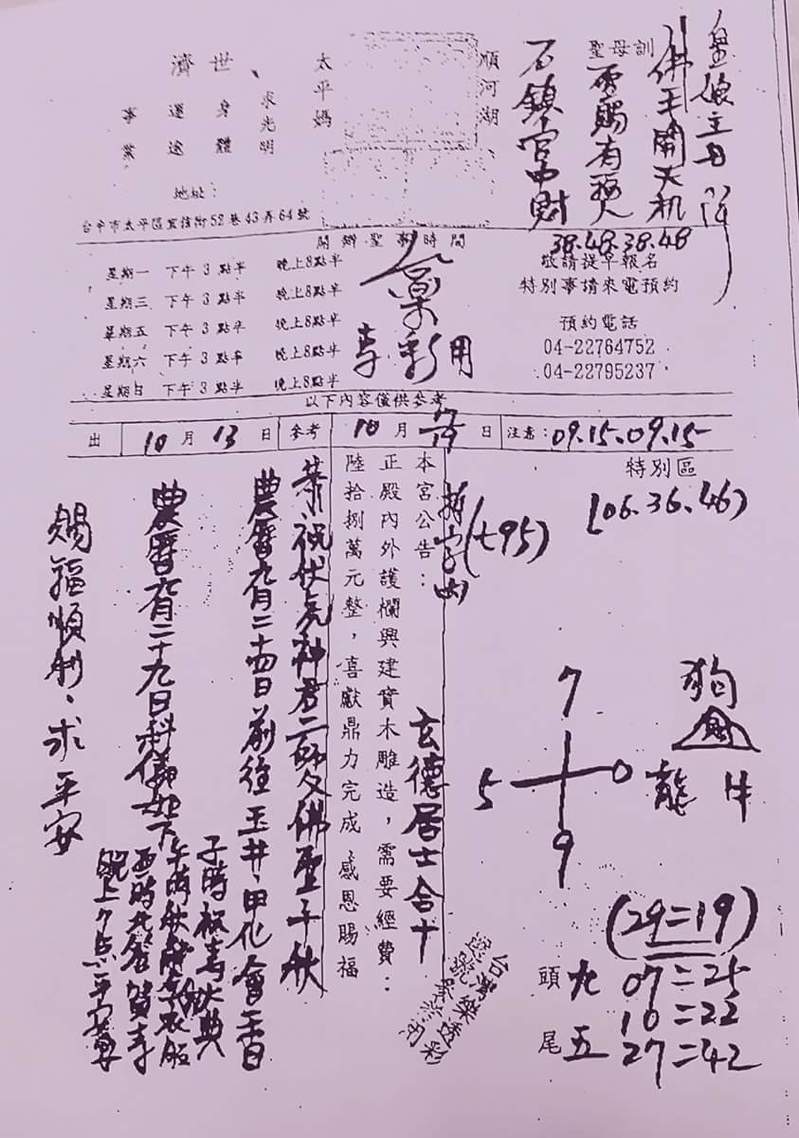 皇娘主母降
佛王開天机
聖母訓
要賜有福人
石鎮宮中財
38.48.38.48
順河湖
太平媽
世、濟
求光明
身體
運途
事業
地址：
台中市太平區宜信街52巷43弄64號
開辦聖事時間
星期一 下午3點半 晚上8點半
星期三 下午3點半 晚上8點半
星期五 下午3點半 晚上8點半
星期六 下午3點半 晚上8點半
星期日 下午3點半 晚上8點半
敬請提早報名
特別事請來電預約
預約電話
04-22764752
04-22795237
以下內容僅供參考
出 10月13日 參考 10月 日 注意：09.15.09.15
特別區
(06.36.46)
(795)
本宮公告：
正殿內外護欄興建實木雕造，需要經費：
陸拾捌萬元整，喜獻鼎力完成、感恩賜福
玄德居士合十
恭祝伏虎神君二師父佛聖千秋
農曆九月二十四日前往玉井、甲化會香日
農曆九月二十九日科儀如下
晚上7点平安
賜福順利、求平安
7
5 0
9
狗
財
龍 牛
(29=19)
頭 九 07=25
10=22
尾 五 27=42
台灣樂透彩